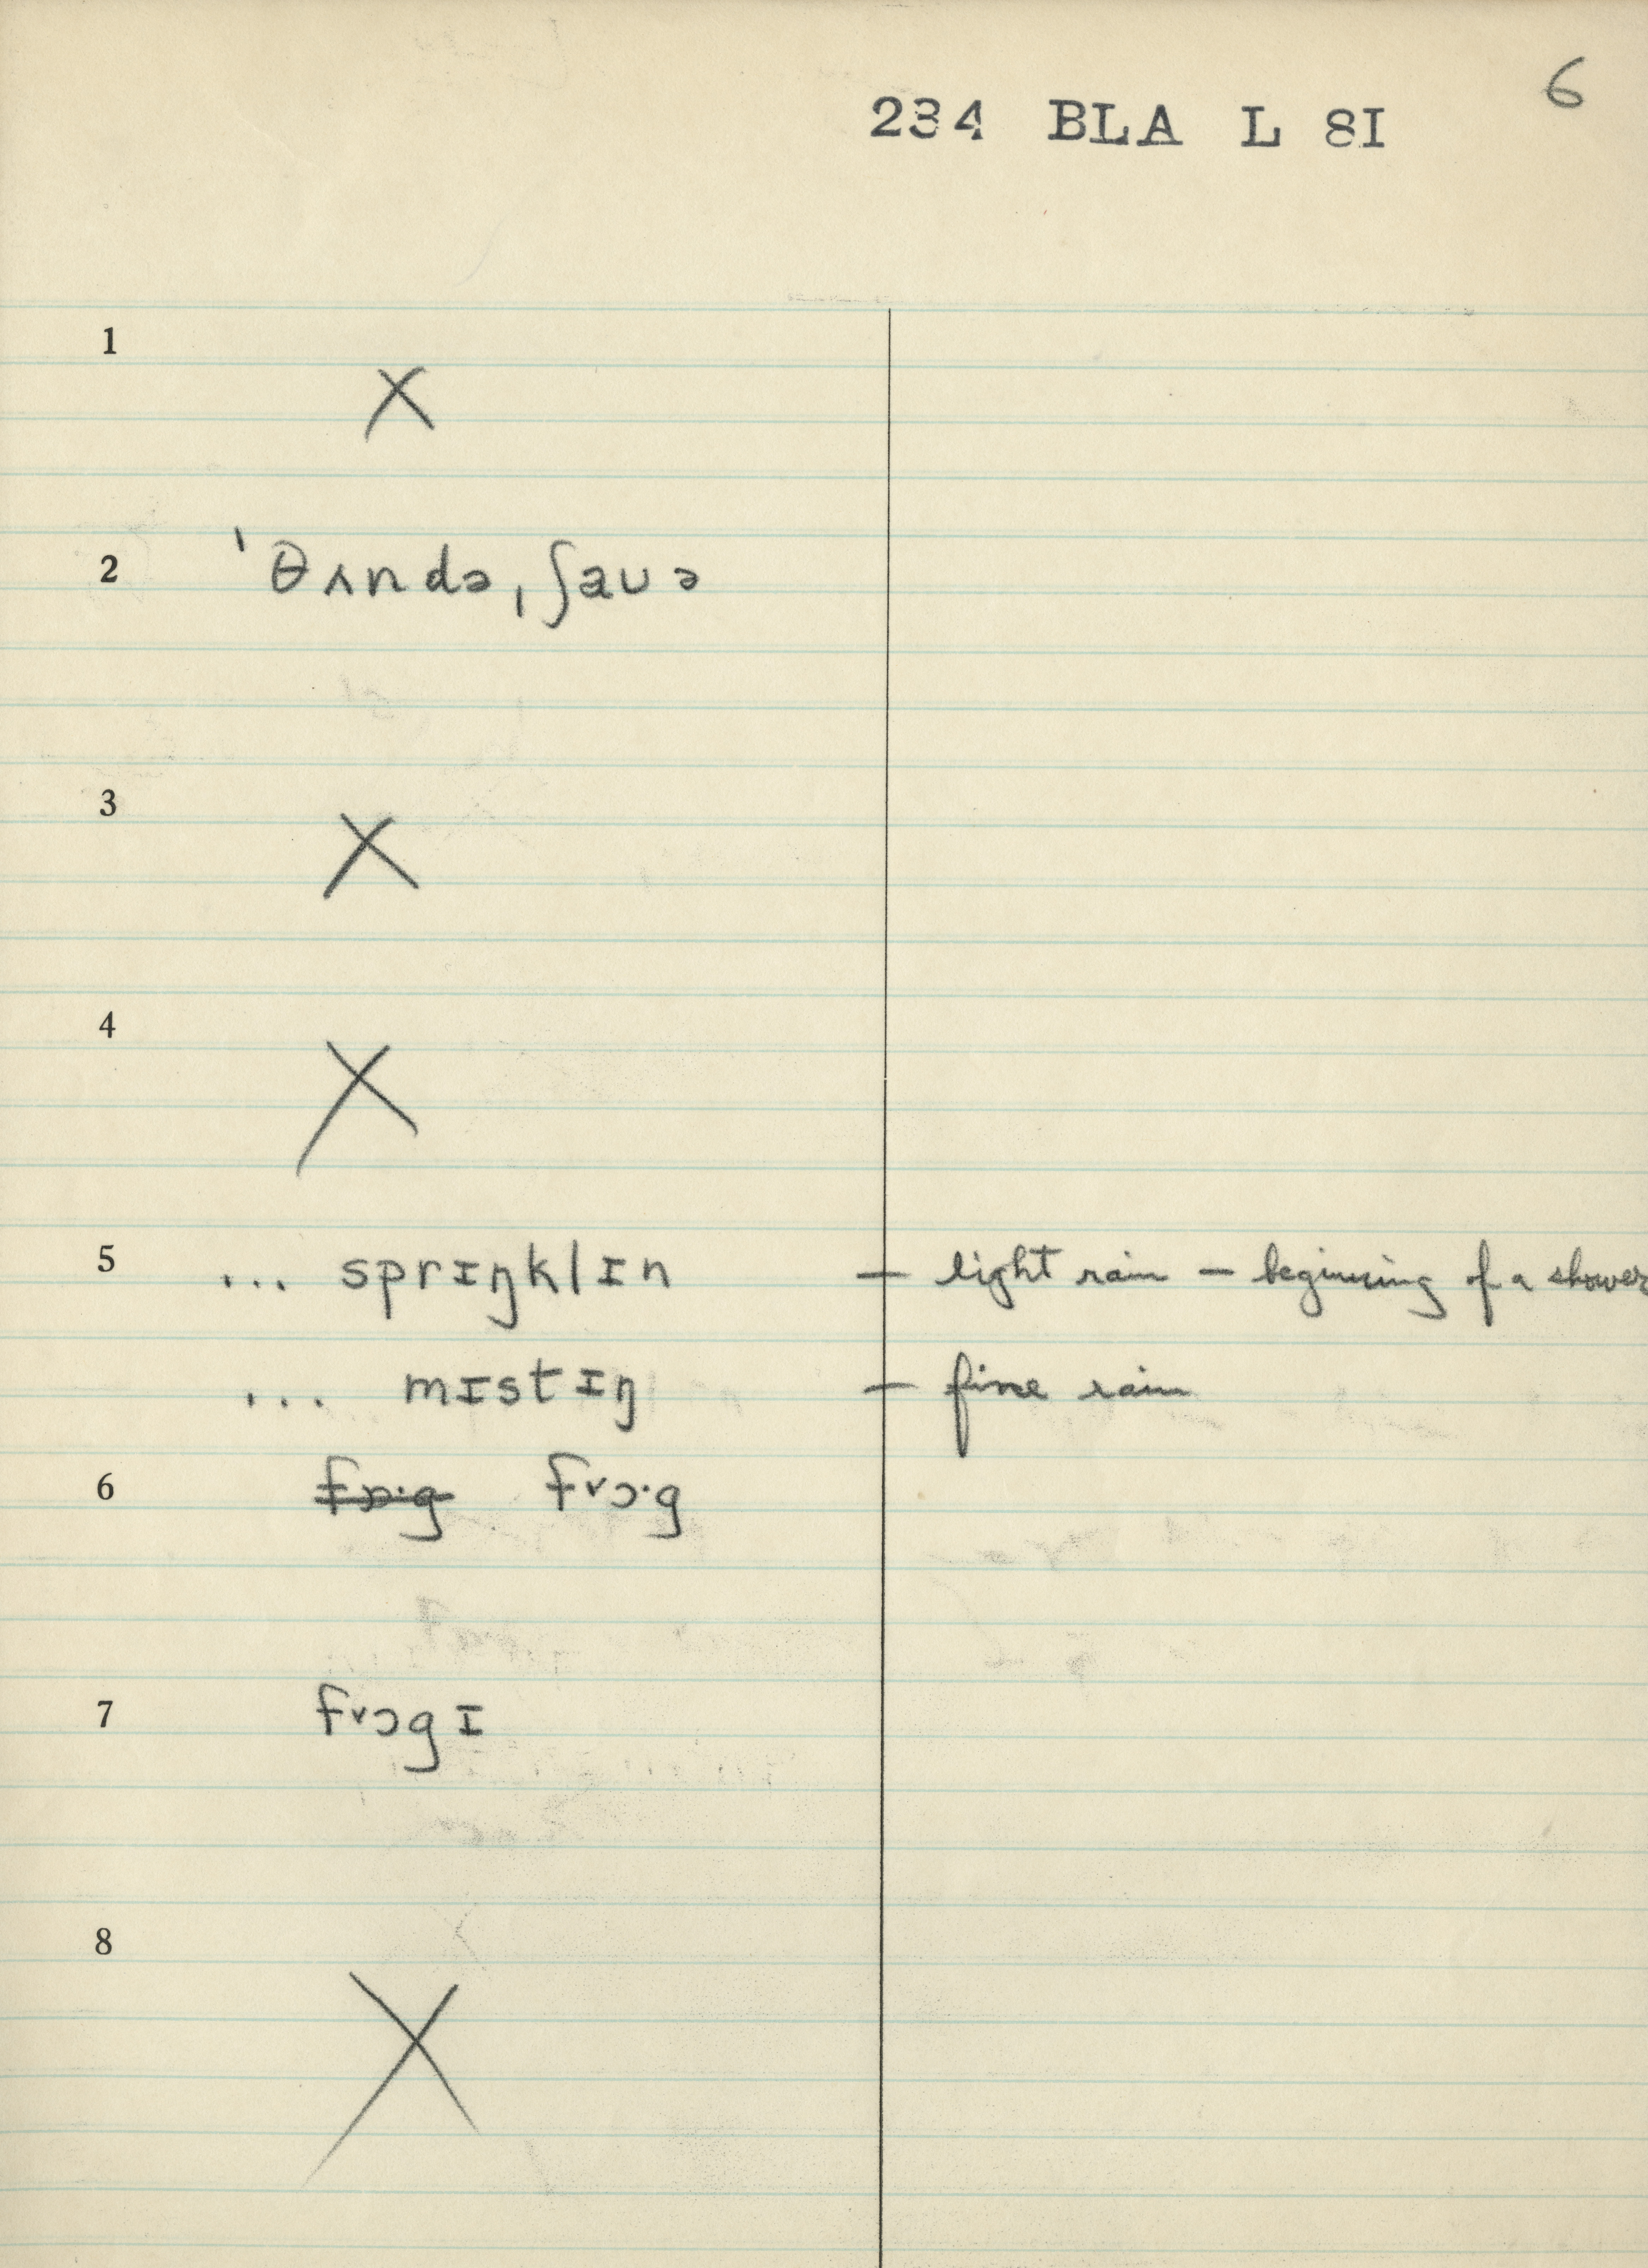 6
234 BLA L 8I
1 X
2 ˈθʌndə ˌʃaʊə
3 X
4 X
5 ... sprɪŋklɪn — light rain — beginning of a shower
... mɪstɪŋ — fine rain
6 fɒ·g fᵛɔ·g
7 fᵛɔgɪ
8 X